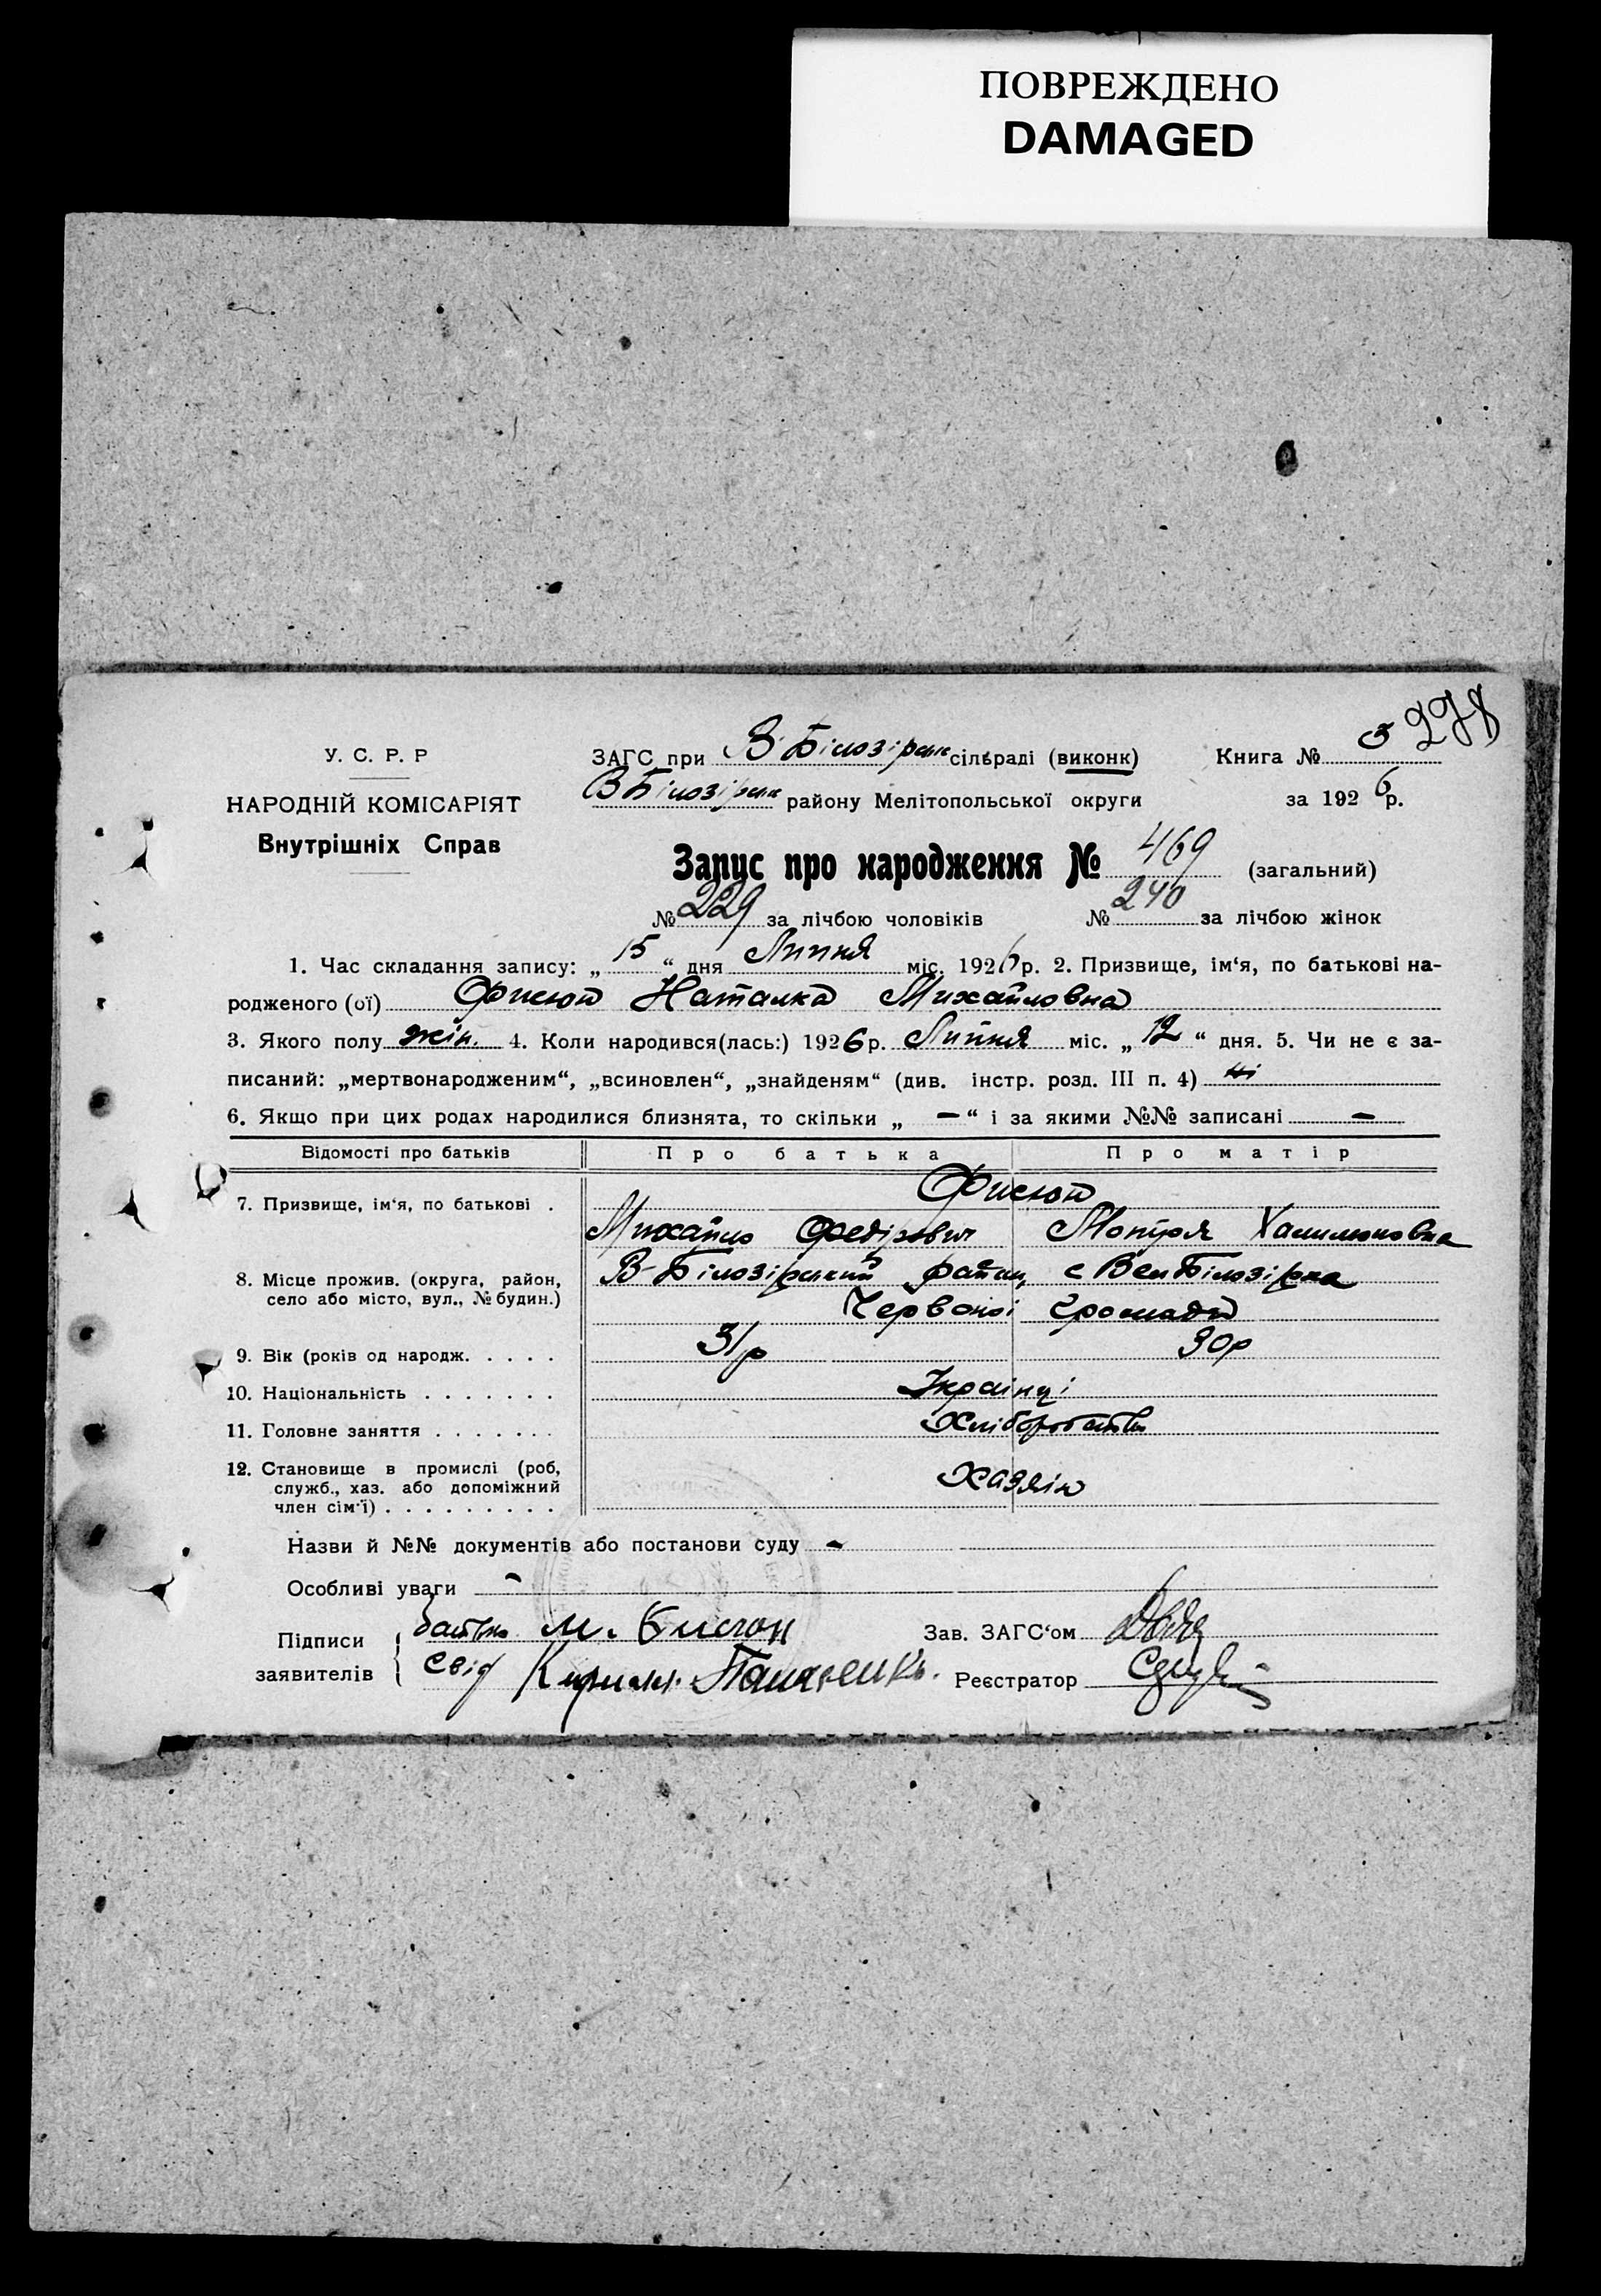 ПОВРЕЖДЕНО
DAMAGED
278
У. С. Р. Р
НАРОДНІЙ КОМІСАРІЯТ
Внутрішніх Справ
ЗАГС при В Білозірськ сільраді (виконк) Книга № 3
В Білозірськ району Мелітопольської округи за 1926 р.
Запис про народження № 469 (загальний)
№ 229 за лічбою чоловіків № 240 за лічбою жінок
1. Час складання запису: „ 15 “ дня Липня міс. 1926 р. 2. Призвище, ім‘я, по батькові на-
родженого (ої) Фисюн Наталка Михайловна
3. Якого полу жін. 4. Коли народився(лась:) 1926 р. Липня міс. „ 12 “ дня. 5. Чи не є за-
писаний: „мертвонародженим“, „всиновлен“, „знайденям“ (див. інстр. розд. III п. 4) ні
6. Якщо при цих родах народилися близнята, то скільки „ — “ і за якими №№ записані —
Відомості про батьків Про батька Про матір
7. Призвище, ім‘я, по батькові . Фисюн
Михайло Федірович Мотря
8. Місце прожив. (округа, район, село або місто, вул., № будин.) В-Білозірський район, с Вел Білозірка
Червоної громади
9. Вік (років од народж. . . . . 31 р 30 р
10. Національність . . . . . . . Українці
11. Головне заняття . . . . . . . Хліборобство
12. Становище в промислі (роб, служб., хаз. або допоміжний член сім‘ї) . . . . . . . . . хазяїн
Назви й №№ документів або постанови суду -
Особливі уваги -
Підписи заявителів батько М. Фисюн Зав. ЗАГС‘ом
свід Кирилл Реєстратор